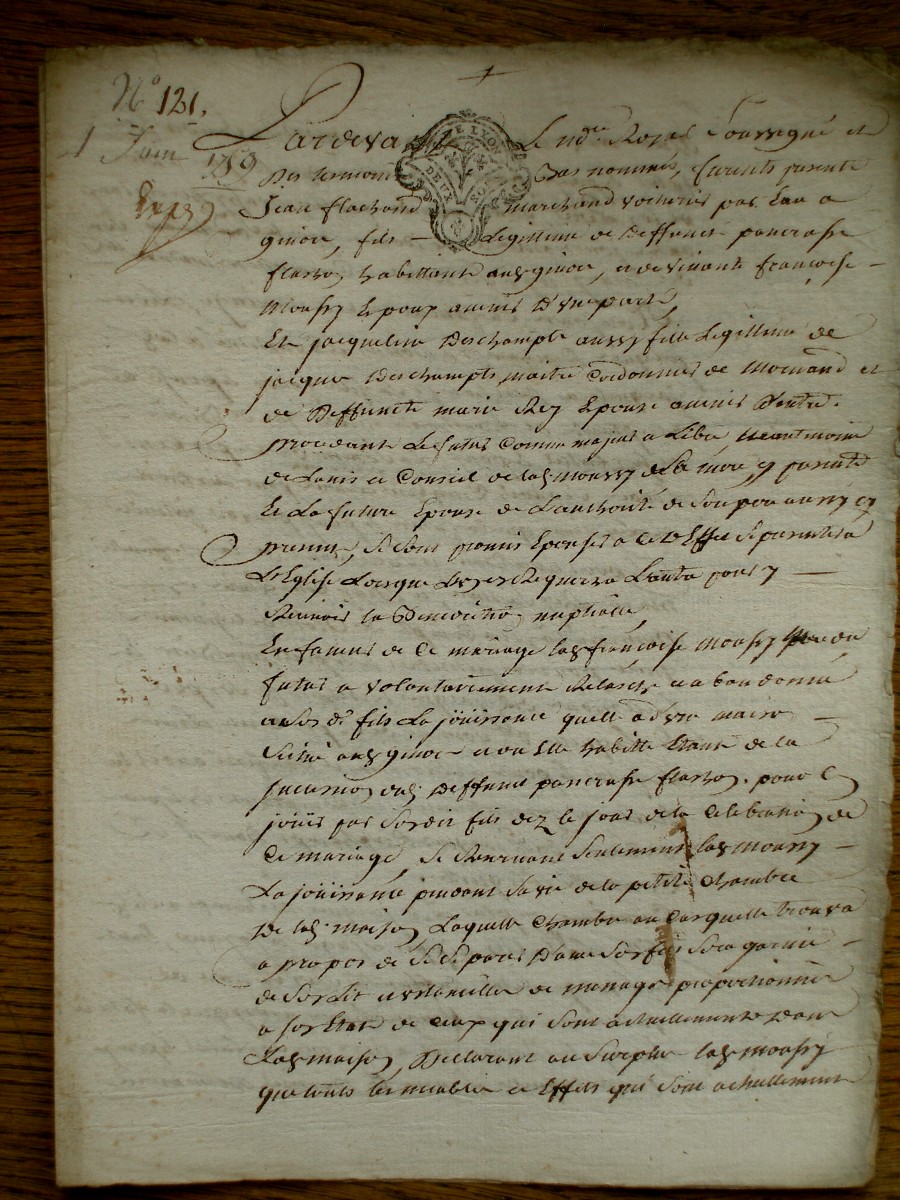 N° 121.
1 Juin 1789
Expé
Pardevant Le no.re Royal soussigné et
Des temoins Bas nommés, furent presents
Jean flachond marchand voiturier par Eau a
givors, fils Legitime de Deffunct pancrasse
flachon habittant aud. givors, et de vivante françoise
Moussy Epoux avenir D'une part,
Et jacqueline Deschamps aussy fille Legittime de
jacques Deschamps maitre Cordonnier de Mornand et
de Deffuncte marie Rey Epouse avenir D'autre.
procedants Le futur Comme majeur et Libre Neantmoins
de L'avis et Conseil de lad. Moussy de sa mere y presente
Et La future Epouse de L'authorité de Son pere aussy cy
present, Se Sont promis Epouser a Cet Effet Se presenter a
L'Eglise Lorsque L'un en Requerra L'autre pour y
Recevoir la Benediction nuptiale,
En faveur de Ce mariage lad. françoise Moussy mere du
futur a volontairement Relasché et abandonné
a Son d. fils La joüissance quelle a d'une maison
Scitué aud. givors et ou Elle habitte Etant de la
succession dud. Deffunct pancrasse flachon. pour En
joüir par Sondit fils dez le jour de la Celebration de
Ce mariage, Se Reservant Seulement lad. Moussy
La joüissance pendant Sa vie de la petite Chambre
De lad. maison, Laquelle Chambre au Cas quelle trouva
a propos de Se Separer D'avec Son fils Sera garnie
de Son Lit et ustencilles de menage proportionnés
a son Etat de Ceux qui Sont actuellement Dans
Lad. maison, Declarant au Surplus lad. Moussy
que touts les meubles et Effets qui Sont actuellement